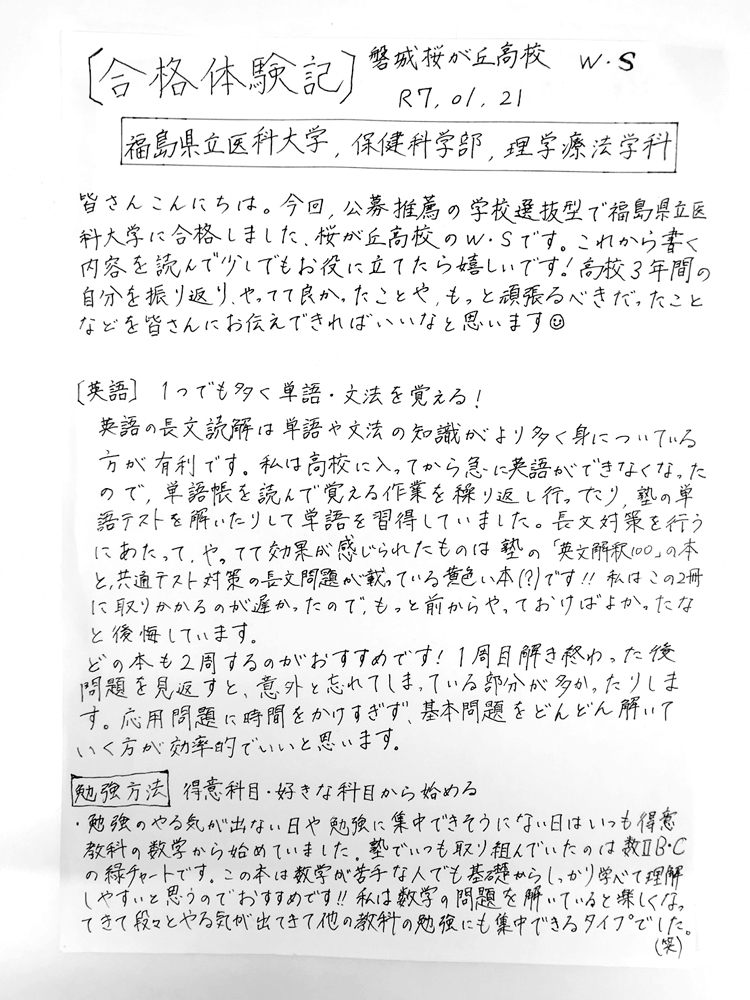 〔合格体験記〕 磐城桜が丘高校 W.S
R7,01,21
福島県立医科大学,保健科学部,理学療法学科
皆さんこんにちは。今回,公募推薦の学校選抜型で福島県立医
科大学に合格しました、桜が丘高校のW.Sです。これから書く
内容を読んで少しでもお役に立てたら嬉しいです!高校3年間の
自分を振り返り、やってて良かったことや、もっと頑張るべきだったこと
などを皆さんにお伝えできればいいなと思います☺
〔英語〕 1つでも多く単語・文法を覚える!
英語の長文読解は単語や文法の知識がより多く身についている
方が有利です。私は高校に入ってから急に英語ができなくなった
ので,単語帳を読んで覚える作業を繰り返し行ったり,塾の単
語テストを解いたりして単語を習得していました。長文対策を行う
にあたって,やってて効果が感じられたものは塾の「英文解釈100」の本
と,共通テスト対策の長文問題が載っている黄色い本(?)です!!私はこの2冊
に取りかかるのが遅かったので,もっと前からやっておけばよかったな
と後悔しています。
どの本も2周するのがおすすめです!1周目解き終わった後
問題を見返すと、意外と忘れてしまっている部分が多かったりしま
す。応用問題に時間をかけすぎず、基本問題をどんどん解いて
いく方が効率的でいいと思います。
勉強方法 得意科目・好きな科目から始める
・勉強のやる気が出ない日や勉強に集中できそうにない日はいつも得意
教科の数学から始めていました。塾でいつも取り組んでいたのは数ⅡB・C
の緑チャートです。この本は数学が苦手な人でも基礎からしっかり学べて理解
しやすいと思うのでおすすめです!!私は数学の問題を解いていると楽しくなっ
てきて段々とやる気が出てきて他の教科の勉強にも集中できるタイプでした。
(笑)